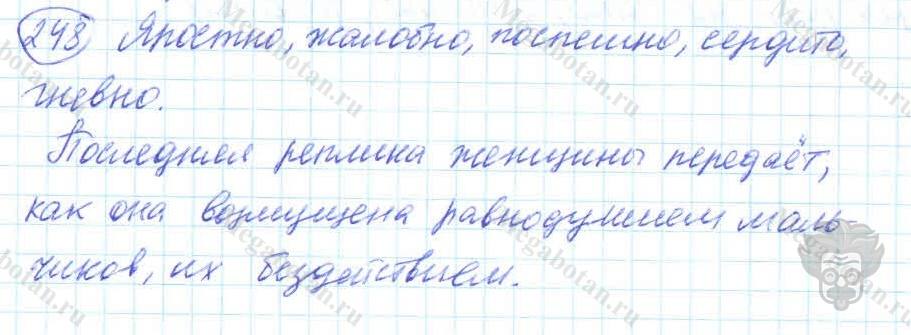 248 Яростно, жалобно, поспешно, сердито,
гневно.
Последняя реплика женщины передаёт,
как она возмущена равнодушием маль-
чиков, их бездействием.
Megabotan.ru